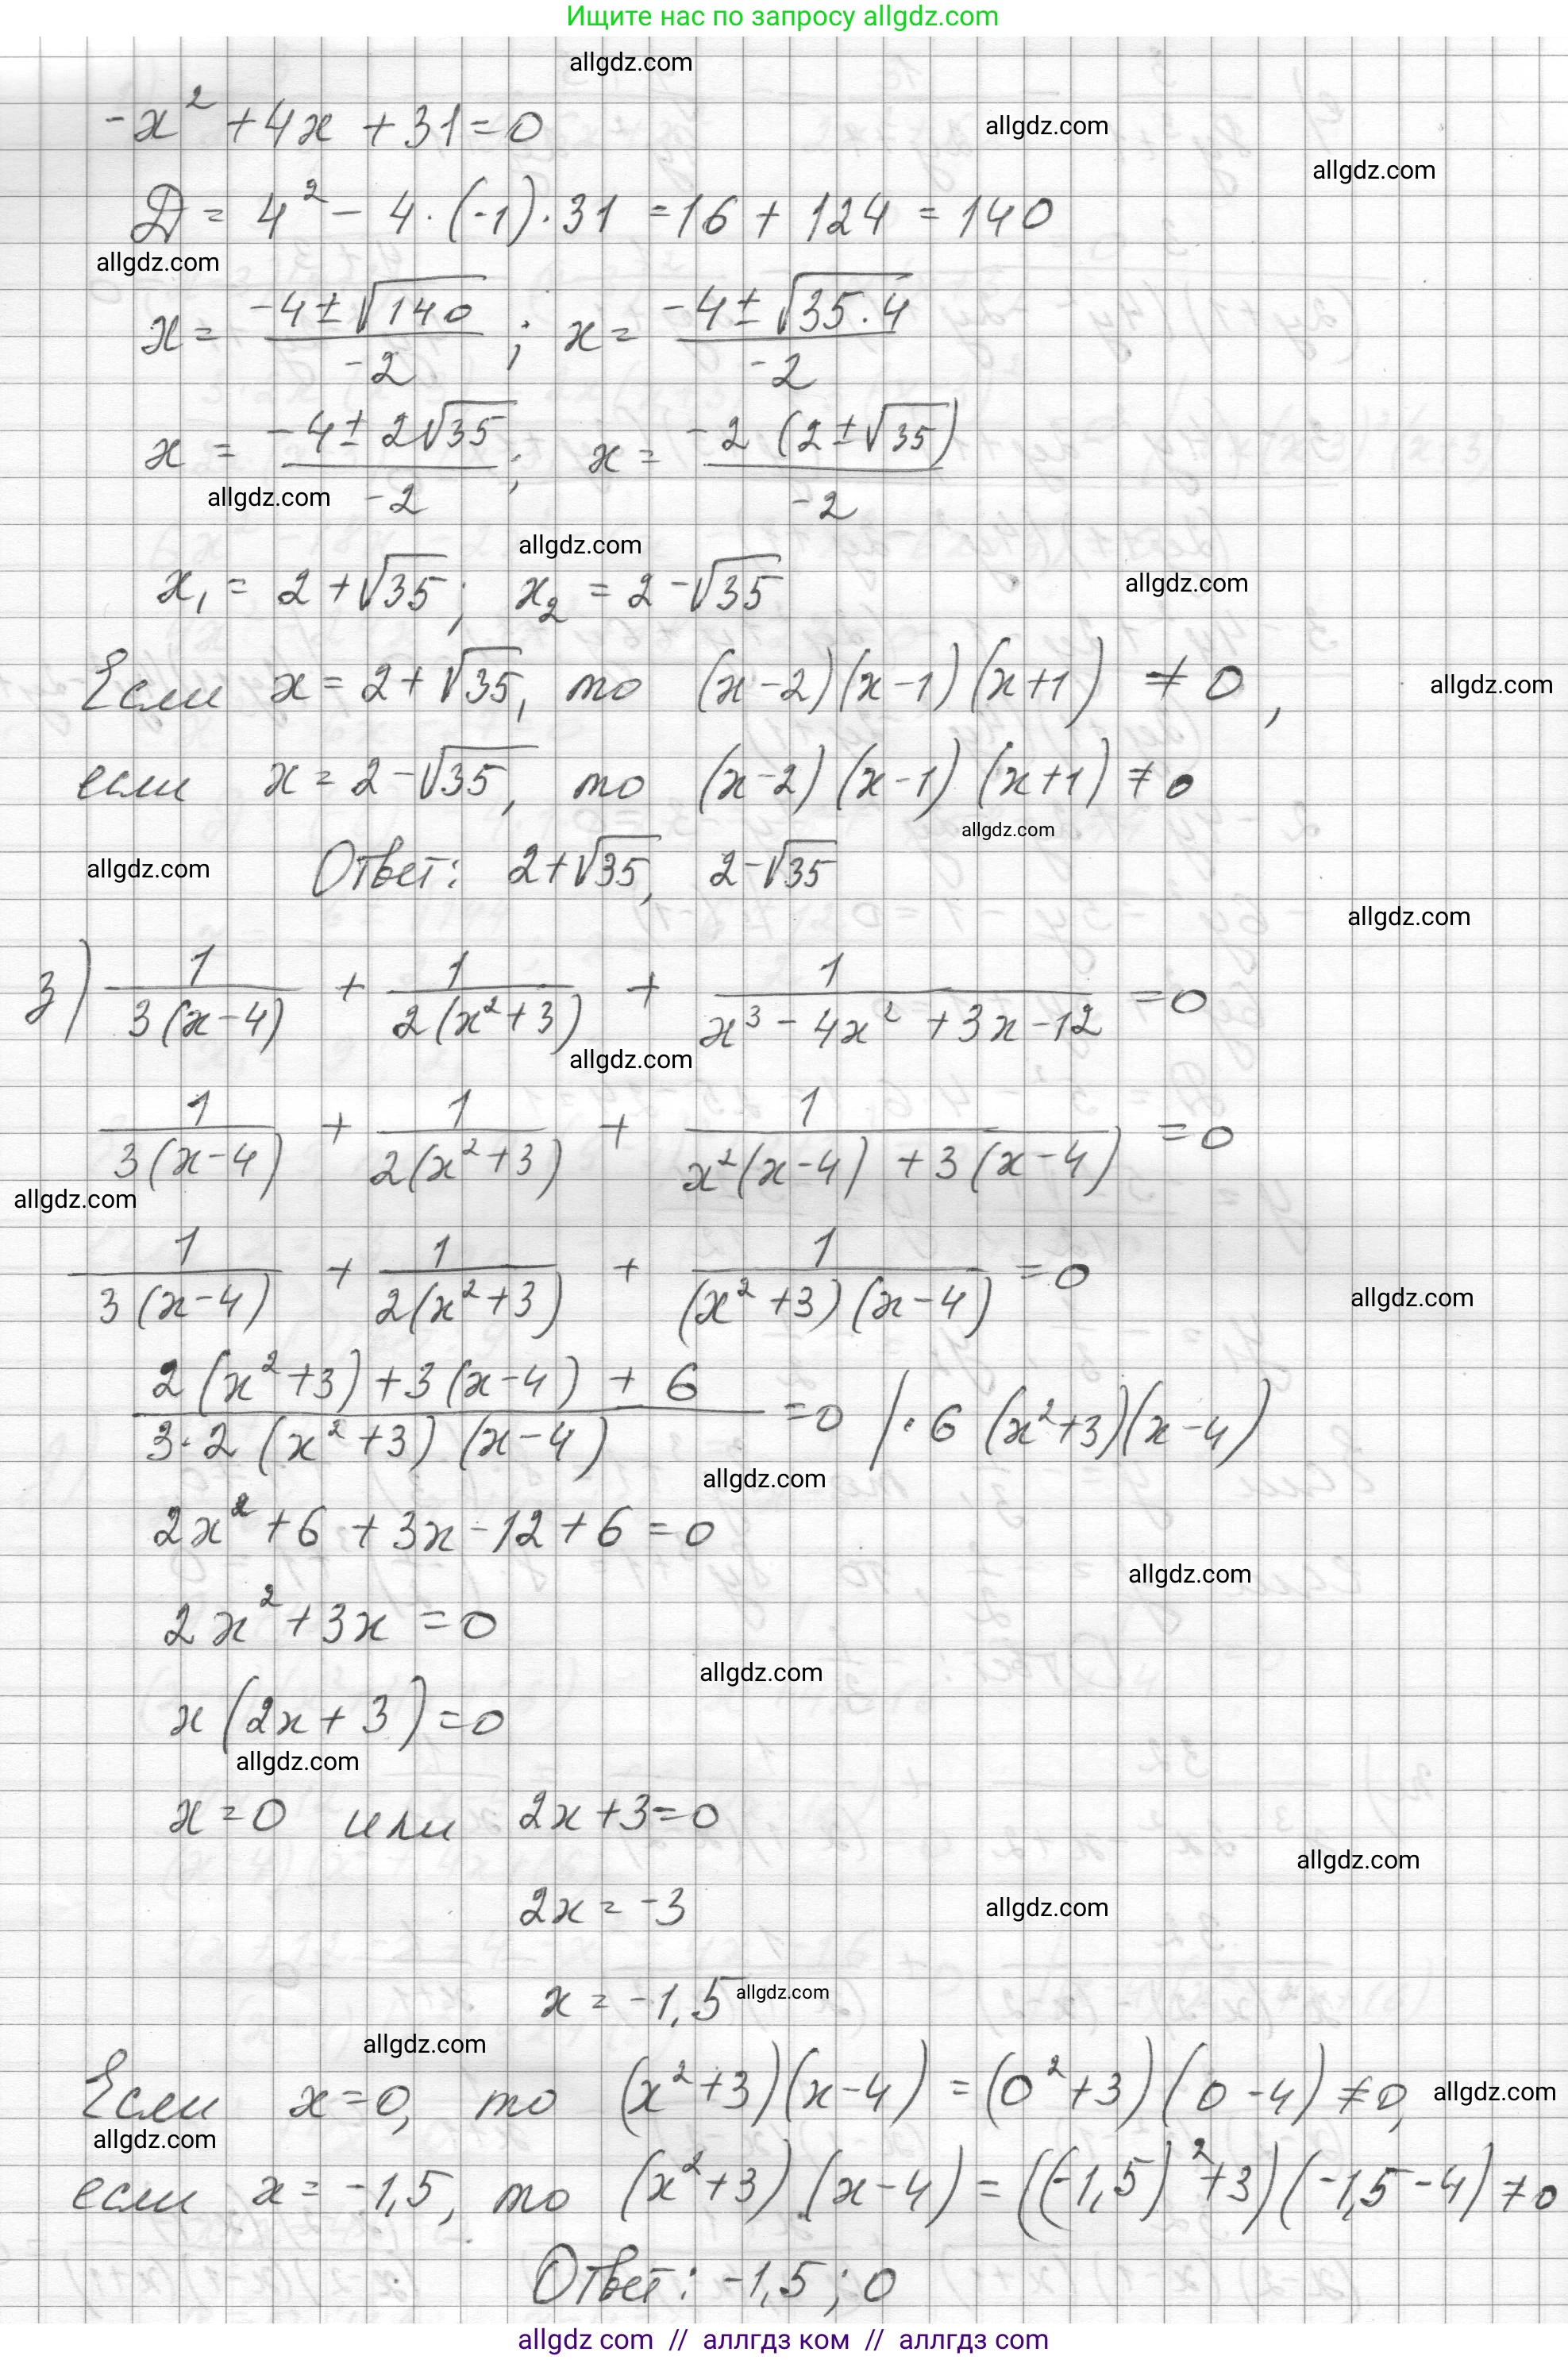 Ищите нас по запросу allgdz.com
allgdz.com
-x² + 4x + 31 = 0
allgdz.com
allgdz.com
D = 4² - 4·(-1)·31 = 16 + 124 = 140
allgdz.com
x = (-4 ± √140)/(-2) ; x = (-4 ± √(35·4))/(-2)
x = (-4 ± 2√35)/(-2) ; x = (-2(2 ± √35))/(-2)
allgdz.com
allgdz.com
x₁ = 2 + √35 ; x₂ = 2 - √35
allgdz.com
Если x = 2 + √35, то (x-2)(x-1)(x+1) ≠ 0 ,
allgdz.com
если x = 2 - √35, то (x-2)(x-1)(x+1) ≠ 0
allgdz.com
Ответ: 2+√35, 2-√35
allgdz.com
allgdz.com
з) 1/(3(x-4)) + 1/(2(x²+3)) + 1/(x³ - 4x² + 3x - 12) = 0
allgdz.com
1/(3(x-4)) + 1/(2(x²+3)) + 1/(x²(x-4) + 3(x-4)) = 0
allgdz.com
1/(3(x-4)) + 1/(2(x²+3)) + 1/((x²+3)(x-4)) = 0
allgdz.com
(2(x²+3) + 3(x-4) + 6)/(3·2(x²+3)(x-4)) = 0 |·6(x²+3)(x-4)
allgdz.com
2x² + 6 + 3x - 12 + 6 = 0
allgdz.com
2x² + 3x = 0
allgdz.com
x(2x + 3) = 0
allgdz.com
x = 0 или 2x + 3 = 0
allgdz.com
2x = -3
allgdz.com
x = -1,5
allgdz.com
allgdz.com
Если x = 0, то (x²+3)(x-4) = (0²+3)(0-4) ≠ 0,
allgdz.com
allgdz.com
если x = -1,5, то (x²+3)(x-4) = ((-1,5)²+3)(-1,5-4) ≠ 0
Ответ: -1,5 ; 0
allgdz com // аллгдз ком // аллгдз com